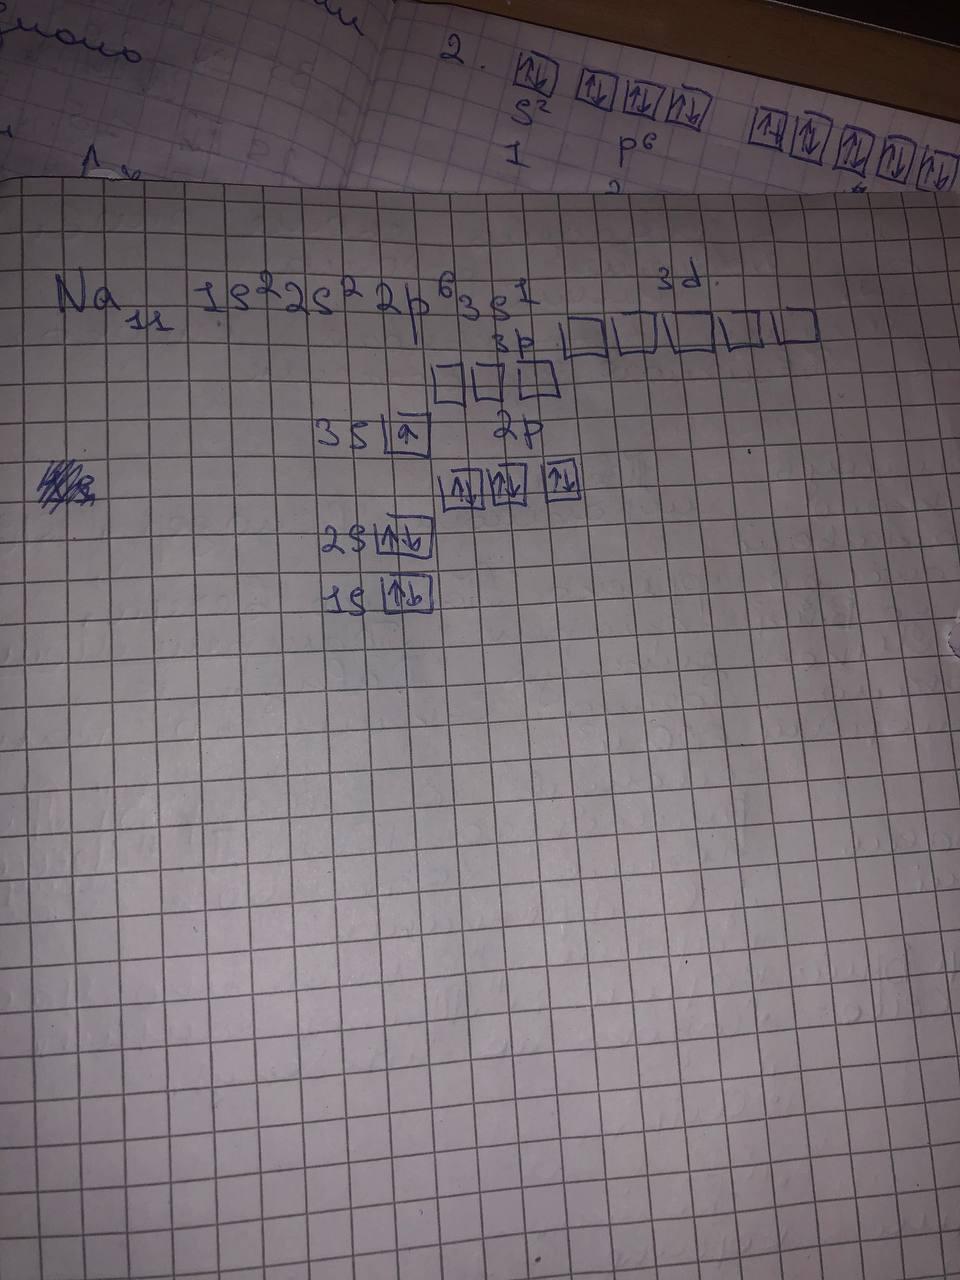 2. ↑↓ ↑↓ ↑↓ ↑↓ ↑↓ ↑↓ ↑↓ ↑↓ ↑↓
s² p⁶
1
Na₁₁ 1s² 2s² 2p⁶ 3s¹ 3d.
3p
3s ↑ 2p
↑↓ ↑↓ ↑↓
2s ↑↓
1s ↑↓